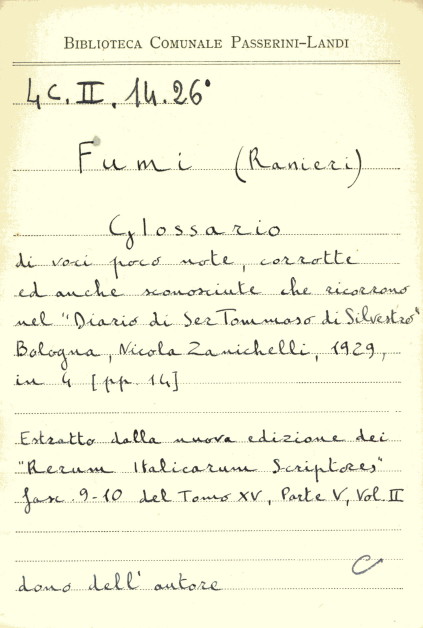 BIBLIOTECA COMUNALE PASSERINI-LANDI
4C. II. 14. 26°
Fumi (Ranieri)
Glossario
di voci poco note, corrotte
ed anche sconosciute che ricorrono
nel "Diario di Ser Tommaso di Silvestro"
Bologna, Nicola Zanichelli, 1929,
in 4 [pp. 14]
Estratto dalla nuova edizione dei
"Rerum Italicarum Scriptores"
fasc. 9-10 del Tomo XV, Parte V, Vol. II
C
dono dell' autore